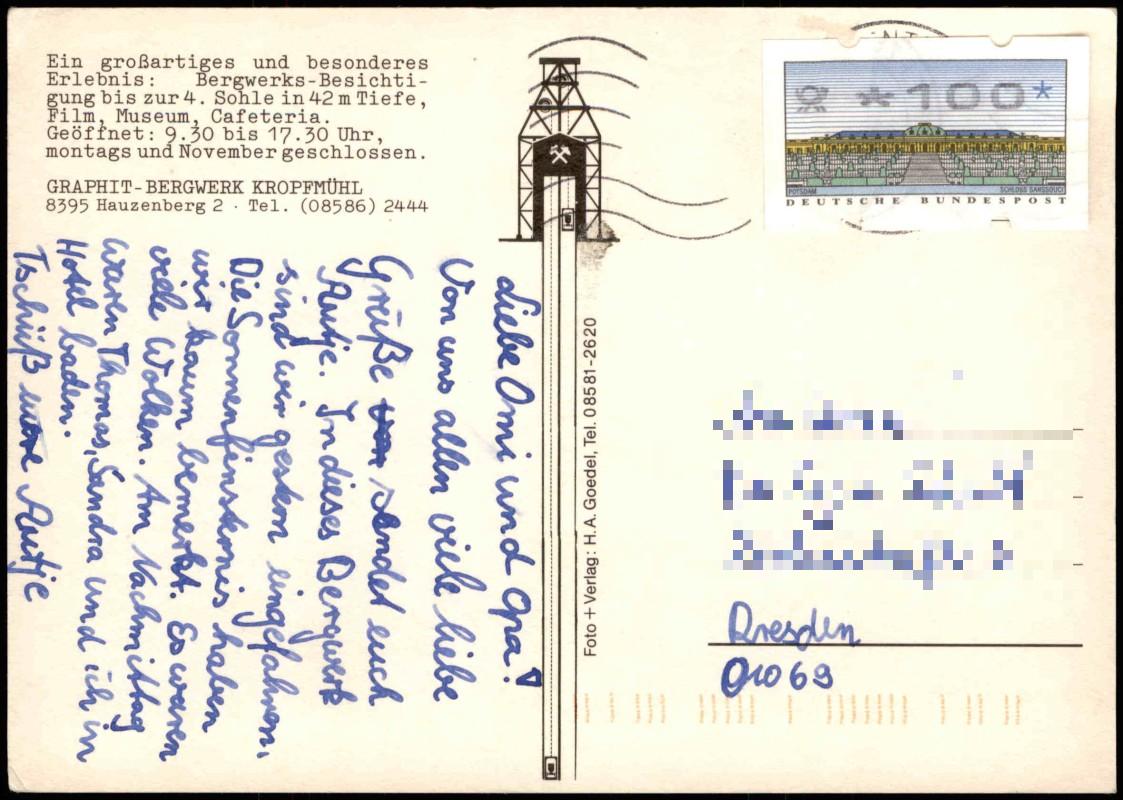 Ein großartiges und besonderes
Erlebnis: Bergwerks-Besichti-
gung bis zur 4. Sohle in 42 m Tiefe,
Film, Museum, Cafeteria.
Geöffnet: 9.30 bis 17.30 Uhr,
montags und November geschlossen.
GRAPHIT-BERGWERK KROPFMÜHL
8395 Hauzenberg 2 · Tel. (08586) 2444
Liebe Omi und Opa!
Von uns allen viele liebe
Grüße sendet euch
Antje. In dieses Bergwerk
sind wir gestern eingefahren,
Die Sonnenfinsternis haben
wir kaum bemerkt. Es waren
viele Wolken. Am Nachmittag
waren Thomas, Sandra und ich in
Hotel baden.
Tschüß Antje
Foto + Verlag: H. A. Goedel, Tel. 08581-2620
*100*
POTSDAM SCHLOSS SANSSOUCI
DEUTSCHE BUNDESPOST
Dresden
01069